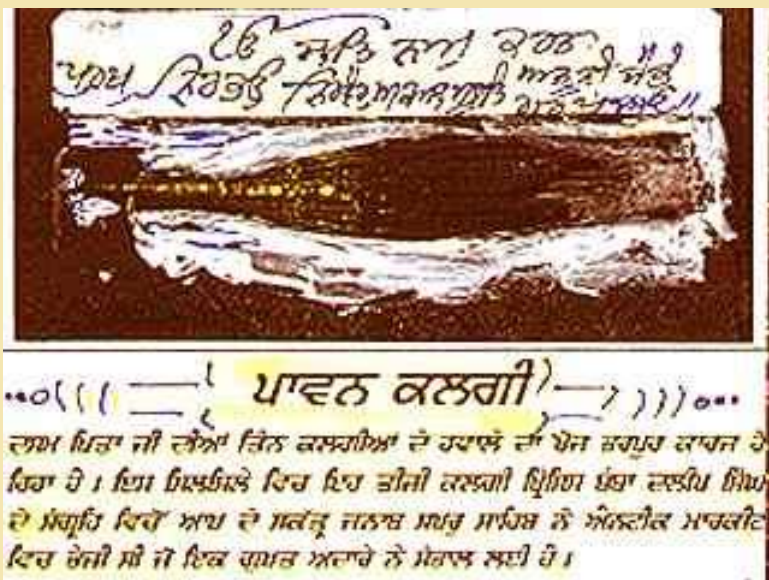 ੴ ਸਤਿ ਨਾਮੁ ਕਰਤਾ
ਪੁਰਖੁ ਨਿਰਭਉ ਨਿਰਵੈਰੁ ਅਕਾਲ ਮੂਰਤਿ ਅਜੂਨੀ ਸੈਭੰ
ਗੁਰ ਪ੍ਰਸਾਦਿ ॥
ਪਾਵਨ ਕਲਗੀ
ਦਸਮ ਪਿਤਾ ਜੀ ਦੀਆਂ ਤਿੰਨ ਕਲਗੀਆਂ ਦੇ ਹਵਾਲੇ ਦਾ ਖੋਜ ਭਰਪੂਰ ਕਾਰਜ ਹੋ
ਰਿਹਾ ਹੈ । ਇਸ ਸਿਲਸਿਲੇ ਵਿਚ ਇਹ ਤੀਜੀ ਕਲਗੀ ਪ੍ਰਿੰਸਿਸ ਬੰਬਾ ਦਲੀਪ ਸਿੰਘ
ਦੇ ਸੰਗ੍ਰਹਿ ਵਿਚੋਂ ਆਪ ਦੇ ਸਕੱਤ੍ਰ ਜਨਾਬ ਸਪਰੂ ਸਾਹਿਬ ਨੇ ਐਨਟੀਕ ਮਾਰਕੀਟ
ਵਿਚ ਵੇਚੀ ਸੀ ਜੋ ਇਕ ਗੁਪਤ ਅਦਾਰੇ ਨੇ ਸੰਭਾਲ ਲਈ ਹੈ ।